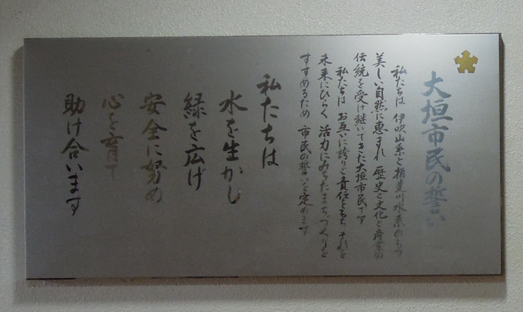 大垣市民の誓い
私たちは 伊吹山系と揖斐川水系のもつ
美しい自然に恵まれ 歴史と文化と産業の
伝統を受け継いできた大垣市民です
私たちは お互いに誇りと責任をもち それを
未来にひらく 活力にみちたまちづくりを
すすめるため 市民の誓いを定めます
私たちは
水を生かし
緑を広げ
安全に努め
心を育て
助け合います